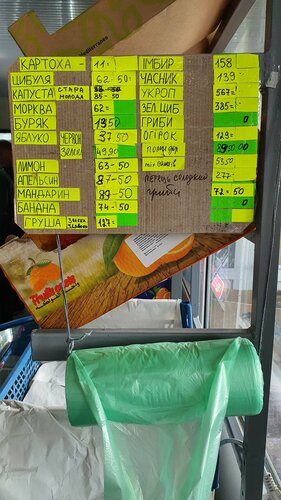 Mediterraneo
КАРТОХА - 11=
ЦИБУЛЯ 62-50
КАПУСТА СТАРА
МОЛОДА 85-50
МОРКВА 62=
БУРЯК 19 50
ЯБЛУКО ЧЕРВОН 37.50
ЗЕЛЕН 49,90
ЛИМОН 63-50
АПЕЛЬСИН 87-50
МАНДАРИН 89-50
БАНАНА 74-50
ГРУША 127=
ІМБІР 158
ЧАСНИК 139
УКРОП 567=
ЗЕЛ ЦИБ 385=
ГРИБИ 0
ОГІРОК 129=
помидор 89 50
5350
перець солодкий 277-
грибы 72=50
0